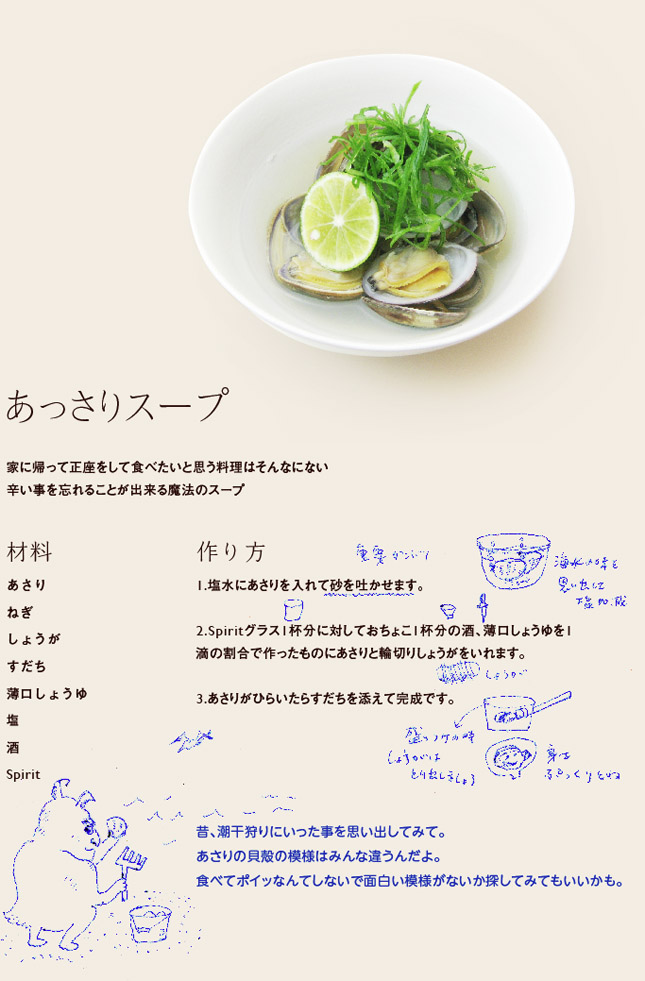 あっさりスープ
家に帰って正座をして食べたいと思う料理はそんなにない
辛い事を忘れることが出来る魔法のスープ
材料
あさり
ねぎ
しょうが
すだち
薄口しょうゆ
塩
酒
Spirit
作り方
1.塩水にあさりを入れて砂を吐かせます。
海水の味を
思い出して
塩加減
2.Spiritグラス1杯分に対しておちょこ1杯分の酒、薄口しょうゆを1
滴の割合で作ったものにあさりと輪切りしょうがをいれます。
しょうが
3.あさりがひらいたらすだちを添えて完成です。
盛りつけの時
しょうがは
とり出しましょう
身は
ふっくらとね
昔、潮干狩りにいった事を思い出してみて。
あさりの貝殻の模様はみんな違うんだよ。
食べてポイッなんてしないで面白い模様がないか探してみてもいいかも。